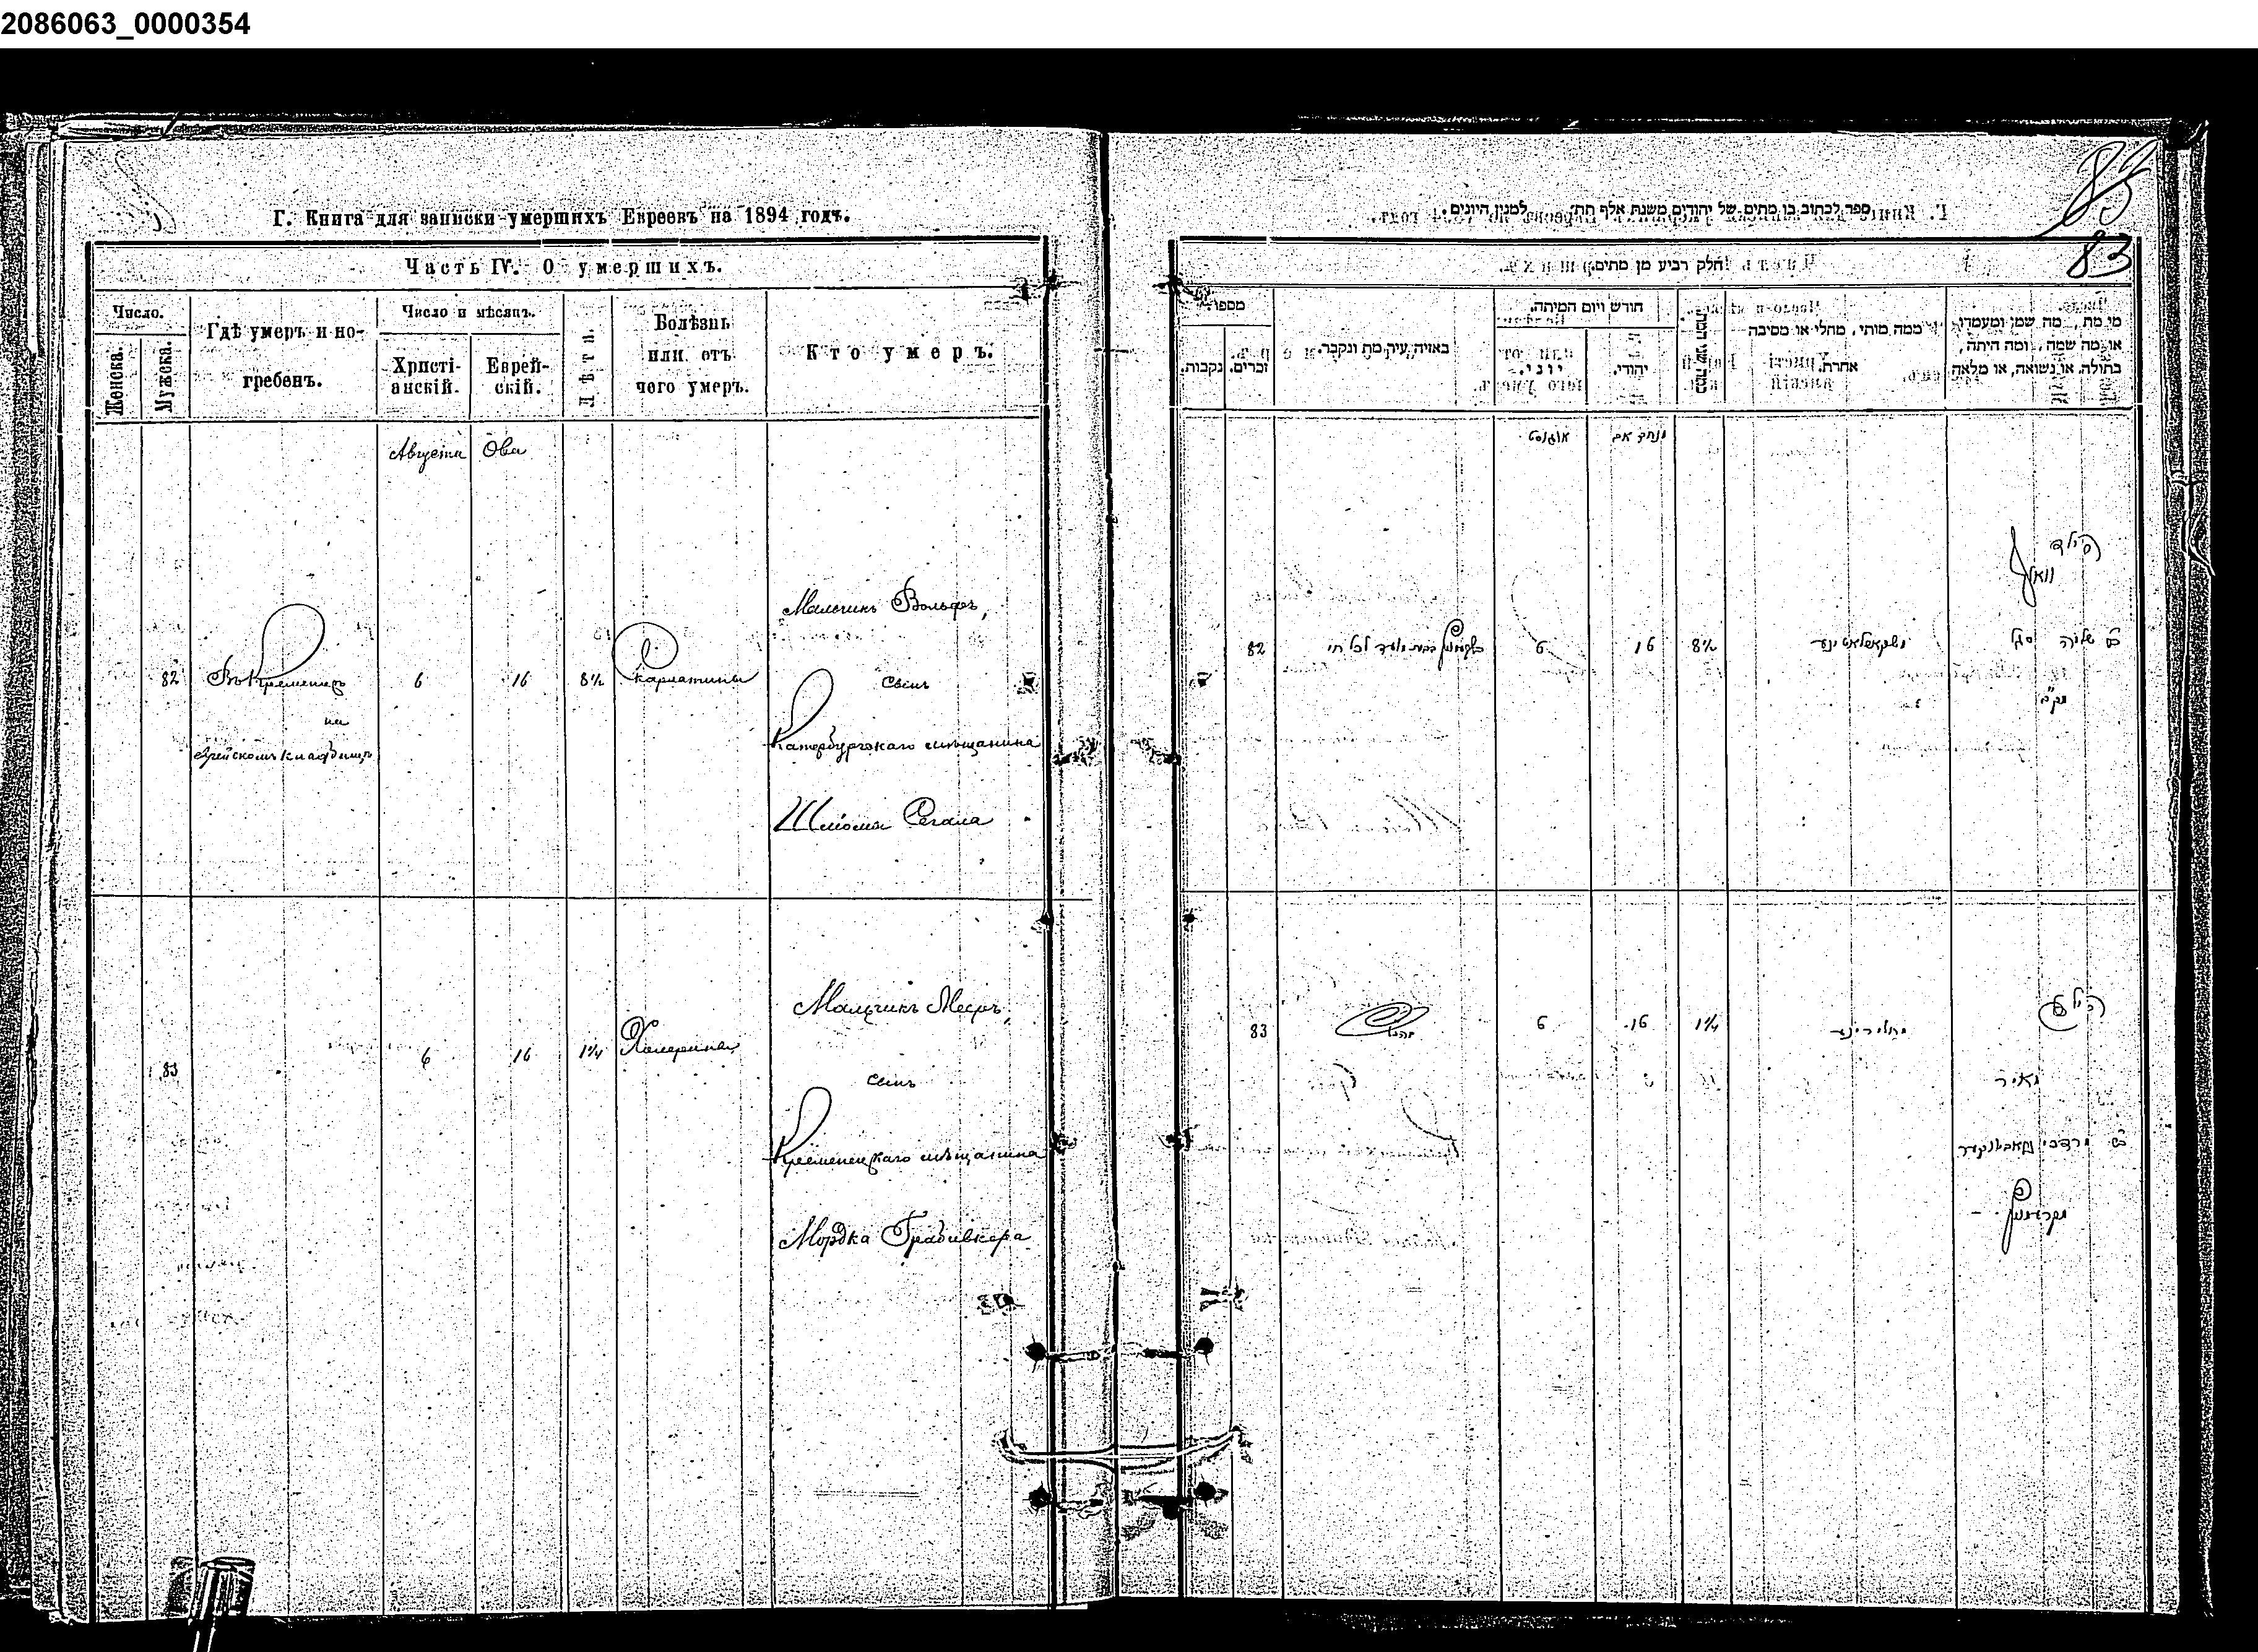 2086063_0000354
Г. Книга для записки умершихъ Евреевъ на 1894 годъ.
Часть IV. О умершихъ.
Число.
Женска.
Мужска.
Гдѣ умеръ и по-
гребенъ.
Число и мѣсяцъ.
Христі-
анскій.
Еврей-
скій.
Лѣта.
Болѣзнь
или отъ
чего умеръ.
Кто умеръ.
Августа Ова
82
Въ Кременцѣ
на
еврейскомъ кладбищѣ
6
16
8½
Скарлатины
Мальчикъ Вольфъ,
сынъ
Катербургскаго мѣщанина
Шлiомы Сегала
83
6
16
1¼
Холерины
Мальчикъ Мееръ,
сынъ
Кременецкаго мѣщанина
Мордка Грабивкера
83
ספר לכתוב בו מתים של יהודים משנת אלף תת׳ למנין היונים.
חלק רביע מן מתים.
מספר
נקבות.
זכרים.
באיזה עיר מת ונקבר.
חודש ויום המיתה.
יוני.
יהודי.
כמה שני המת
ממה מותי, מחלי או מסיבה
אחרת.
מי מת, מה שמו ומעמדו,
או מה שמה, ומה היתה,
בתולה, או נשואה, או מלאה
אוגוסט
מנחם אב
82
6
16
8½
סקארלאטינע
הילד
וואלף
ב״ר שלמה סגל
83
6
16
1¼
חולירינע
הילד
מאיר
ב״ר מרדכי גראביווקער
מקרעמניץ